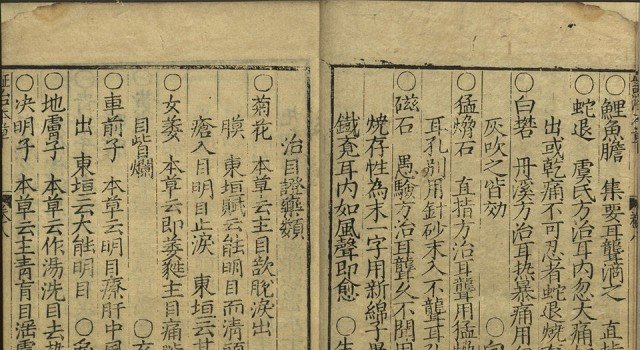 ○鯉魚膽 集要耳聾滴之 直指
○蛇退 虞氏方治耳內忽大痛
出或乾痛不可忍者蛇退燒
○白礬 丹溪方治耳热暴痛用
灰吹之皆効
○猛 石 直指方治耳聾用猛
耳孔別用針砂末入不聾耳
○磁石 愚驗方治耳聾久不聞用
燒存性為末一字用新綿子
鐵竟耳內如風聲即愈 ○生
治目證藥類
○菊花 本草云主目欲脫淚出
膜 東垣賦云能明目而清頭
瘡入目明目止淚 東垣云其
○女萎 本草云即萎蕤主目痛
目眥爛
○車前子 本草云明目療肝中風
出 東垣云大能明目 ○兔
○地膚子 本草云作湯洗目去熱
○决明子 本草云主靑盲目淫膚
證治本草 卷八